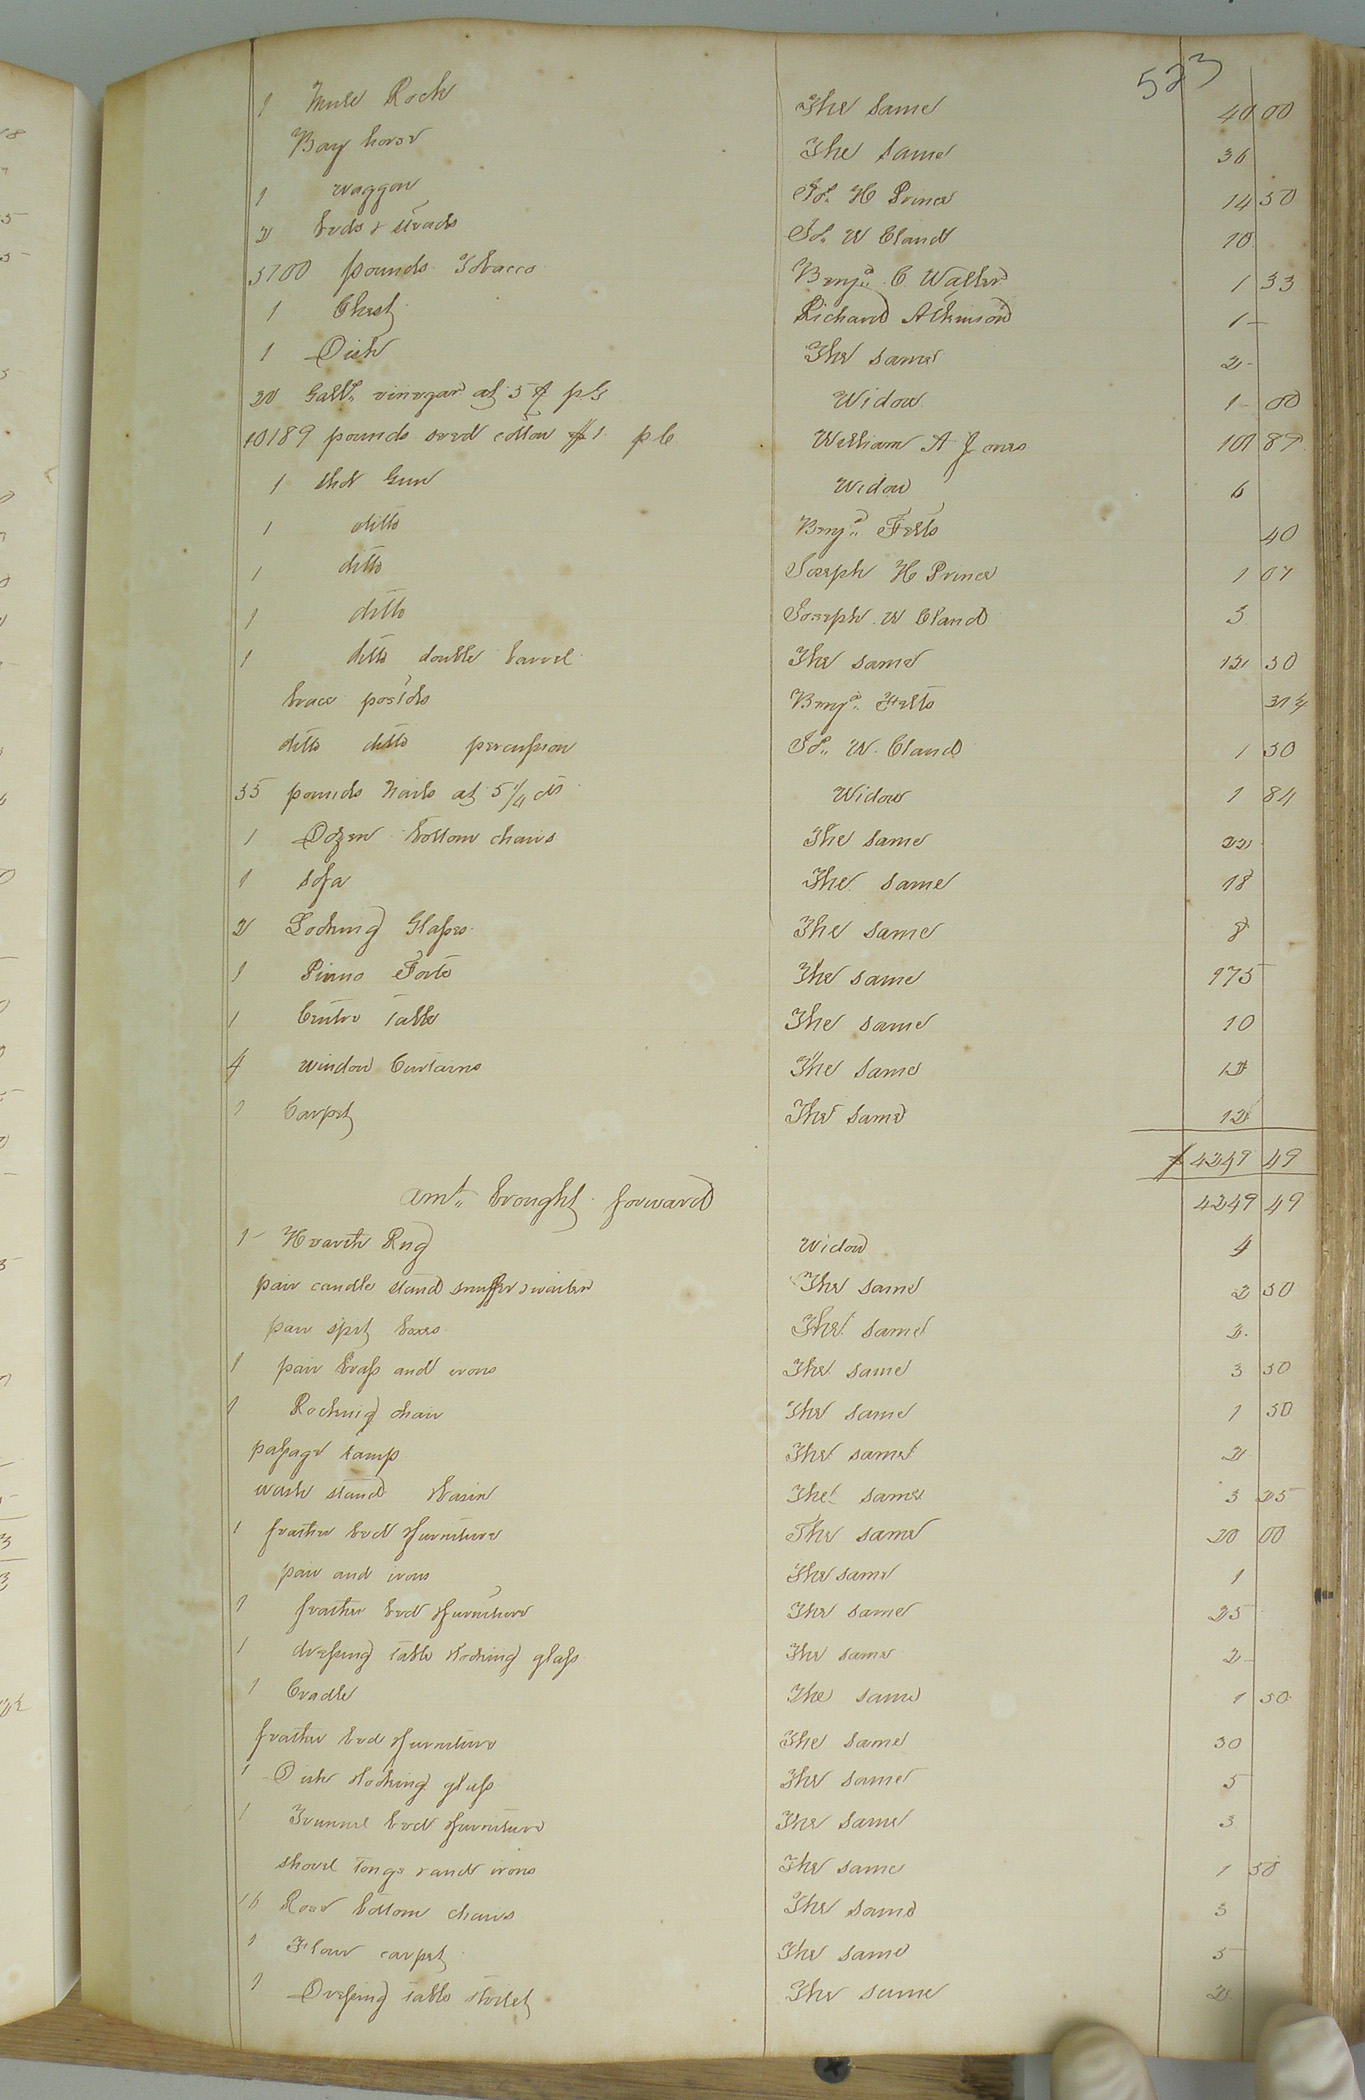 523
1 Mule Rock The Same 40 00
Bay horse The Same 36
1 waggon Jos. H Prince 14 50
2 beds & steads Jos. W Cland 10
5700 pounds Tobacco Benja. C. Waller 1 33
1 Chest Richard Atkinson 1 -
1 Dish The Same 2 -
20 Galls. vinegar at 5 ¢ pG Widow 1 - 00
10189 pounds seed cotton $1. pC William A Jones 101 89
1 Shot Gun Widow 6
1 ditto Benja. Felts 40
1 ditto Joseph H Prince 1 07
1 ditto Joseph W Cland 3
1 ditto double barrel The Same 12 50
brace pistols Benja. Felts 31 1/4
ditto ditto percussion Jos. W. Cland 1 50
35 pounds Nails at 5 1/4 cts Widow 1 84
1 Dozen bottom chairs The Same 22
1 Sofa The Same 18
2 Looking Glasses The Same 8
1 Piano Forte The Same 175
1 Centre Table The Same 10
4 window Curtains The Same 12
1 Carpet The Same 12
$4249 49
amt. brought forward 4249 49
1 Hearth Rug Widow 4
pair candle stand snuffer & waiter The Same 2 50
pair spit boxes The Same 2.
1 pair brass and irons The Same 3 50
1 Rocking chair The Same 1 50
passage lamp The Same 2
wash stand & basin The Same 3 25
1 feather bed & furniture The Same 20 00
pair and irons The Same 1
1 feather bed & furniture The Same 25
1 dressing table & looking glass The Same 2 -
1 Cradle The Same 1 50
feather bed & furniture The Same 30
1 Dish & looking glass The Same 5
1 Trunnel bed & furniture The Same 3
shovel Tongs & and irons The Same 1 50
16 Rood bottom chairs The Same 3
1 Floar carpet The Same 5
1 Dressing table & toilet The Same 2